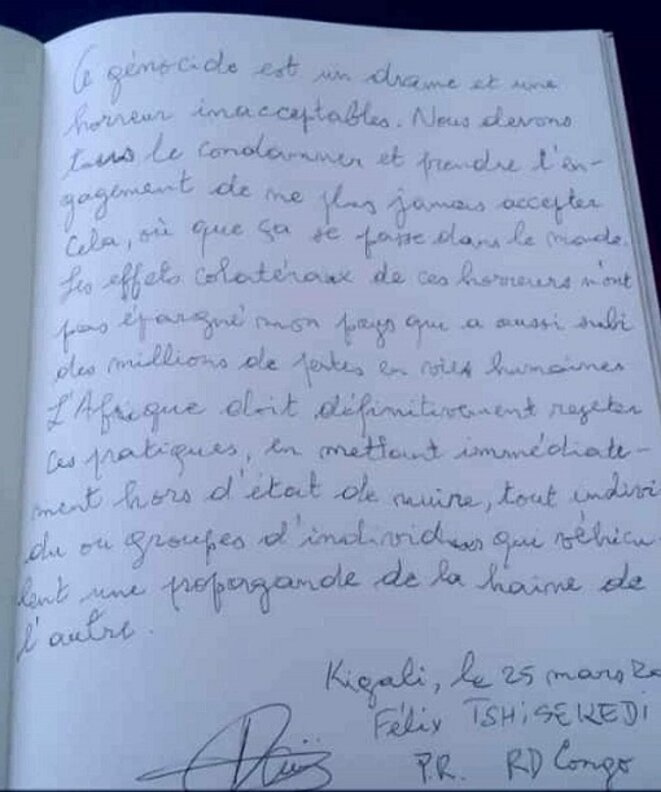 Ce génocide est un drame et une
horreur inacceptables. Nous devons
tous le condamner et prendre l'en-
gagement de ne plus jamais accepter
cela, où que ça se passe dans le monde.
Les effets colatéraux de ces horreurs n'ont
pas épargné mon pays qui a aussi subi
des millions de pertes en vies humaines
L'Afrique doit définitivement rejeter
ces pratiques, en mettant immédiate-
ment hors d'état de nuire, tout indivi
du ou groupes d'individus qui véhicu
lent une propagande de la haine de
l'autre.
Kigali, le 25 mars 20
Félix TSHiSEKEDI
P.R. RD Congo